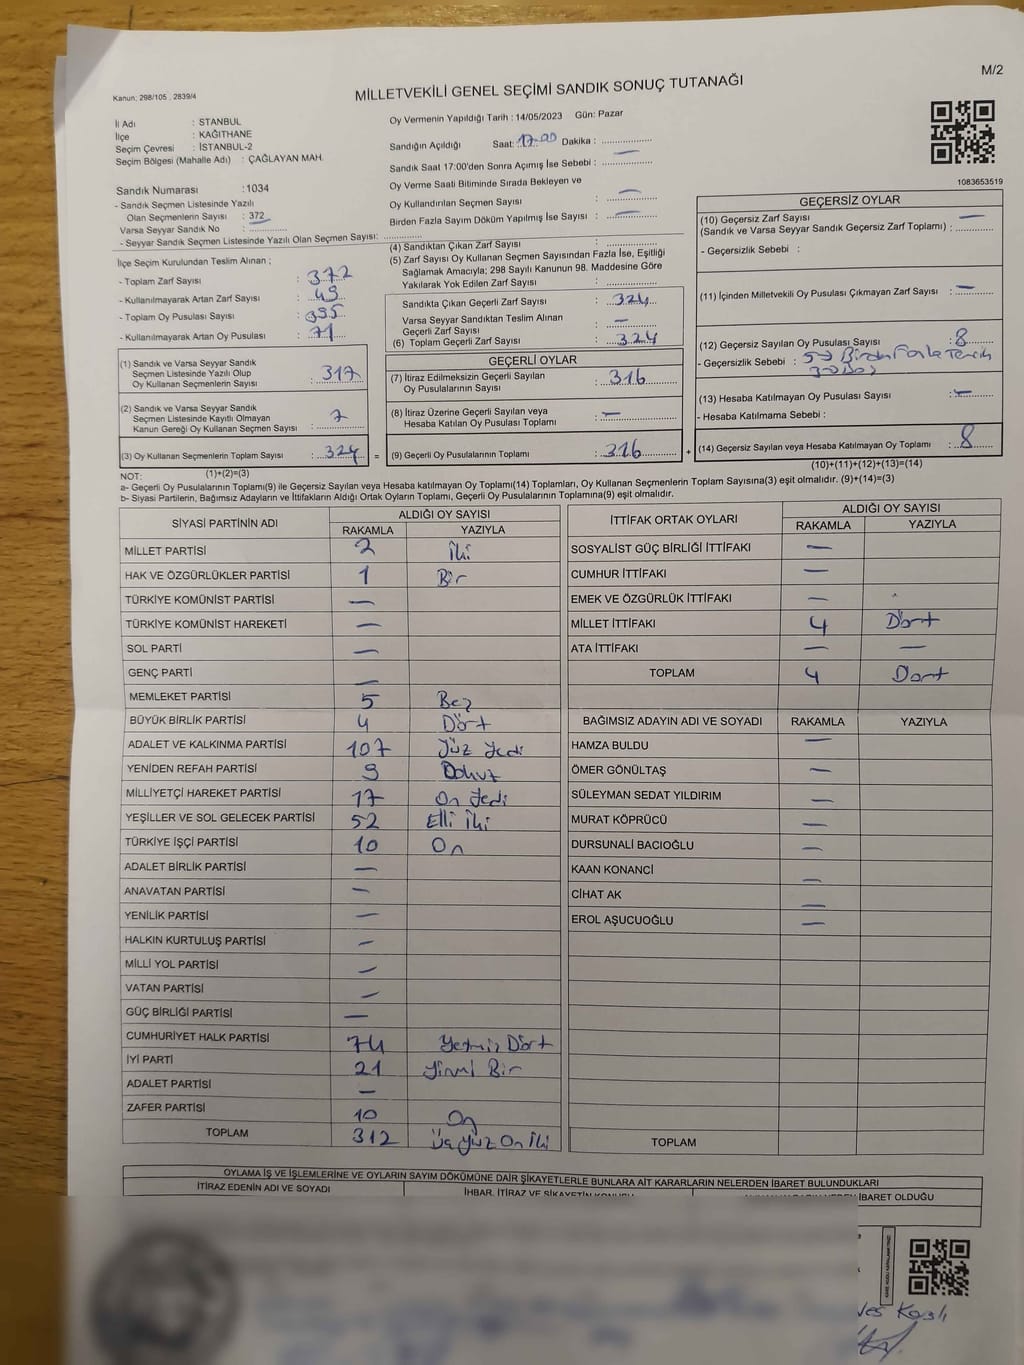 M/2
Kanun; 298/105 , 2839/4
MİLLETVEKİLİ GENEL SEÇİMİ SANDIK SONUÇ TUTANAĞI
İl Adı : STANBUL
İlçe : KAĞITHANE
Seçim Çevresi : İSTANBUL-2
Seçim Bölgesi (Mahalle Adı) : ÇAĞLAYAN MAH.
Oy Vermenin Yapıldığı Tarih : 14/05/2023 Gün: Pazar
Sandığın Açıldığı Saat: 17.00 Dakika : —
Sandık Saat 17:00'den Sonra Açımış İse Sebebi :
Oy Verme Saati Bitiminde Sırada Bekleyen ve
Oy Kullandırılan Seçmen Sayısı : —
Birden Fazla Sayım Döküm Yapılmış İse Sayısı : —
1083653519
Sandık Numarası : 1034
- Sandık Seçmen Listesinde Yazılı
Olan Seçmenlerin Sayısı : 372
Varsa Seyyar Sandık No :
- Seyyar Sandık Seçmen Listesinde Yazılı Olan Seçmen Sayısı:
İlçe Seçim Kurulundan Teslim Alınan ;
- Toplam Zarf Sayısı : 372
- Kullanılmayarak Artan Zarf Sayısı : 49
- Toplam Oy Pusulası Sayısı : 395
- Kullanılmayarak Artan Oy Pusulası : 71
(1) Sandık ve Varsa Seyyar Sandık
Seçmen Listesinde Yazılı Olup
Oy Kullanan Seçmenlerin Sayısı : 317
(2) Sandık ve Varsa Seyyar Sandık
Seçmen Listesinde Kayıtlı Olmayan
Kanun Gereği Oy Kullanan Seçmen Sayısı : 7
(3) Oy Kullanan Seçmenlerin Toplam Sayısı : 324 =
(1)+(2)=(3)
(4) Sandıktan Çıkan Zarf Sayısı :
(5) Zarf Sayısı Oy Kullanan Seçmen Sayısından Fazla İse, Eşitliği
Sağlamak Amacıyla; 298 Sayılı Kanunun 98. Maddesine Göre
Yakılarak Yok Edilen Zarf Sayısı :
Sandıkta Çıkan Geçerli Zarf Sayısı : 324
Varsa Seyyar Sandıktan Teslim Alınan
Geçerli Zarf Sayısı : —
(6) Toplam Geçerli Zarf Sayısı : 324
GEÇERLİ OYLAR
(7) İtiraz Edilmeksizin Geçerli Sayılan
Oy Pusulalarının Sayısı : 316
(8) İtiraz Üzerine Geçerli Sayılan veya
Hesaba Katılan Oy Pusulası Toplamı : —
(9) Geçerli Oy Pusulalarının Toplamı : 316 +
GEÇERSİZ OYLAR
(10) Geçersiz Zarf Sayısı —
(Sandık ve Varsa Seyyar Sandık Geçersiz Zarf Toplamı) :
- Geçersizlik Sebebi :
(11) İçinden Milletvekili Oy Pusulası Çıkmayan Zarf Sayısı : —
(12) Geçersiz Sayılan Oy Pusulası Sayısı : 8
- Geçersizlik Sebebi : 5→ Birden Fazla Tercih
3→ Boş
(13) Hesaba Katılmayan Oy Pusulası Sayısı : —
- Hesaba Katılmama Sebebi :
(14) Geçersiz Sayılan veya Hesaba Katılmayan Oy Toplamı : 8
(10)+(11)+(12)+(13)=(14)
NOT:
a- Geçerli Oy Pusulaları Toplamı(9) ile Geçersiz veya Hesaba katılmayan oy Toplamı(14) Toplamları, Oy Kullanan Seçmenlerin Toplam Sayısına(3) eşit olmalıdır. (9)+(14)=(3)
b- Siyasi Partilerin, Bağımsız Adayların ve İttifakların Aldığı Ortak Oyların Toplamı, Geçerli Oy Pusulalarının Toplamına(9) eşit olmalıdır.
SİYASİ PARTİNİN ADI ALDIĞI OY SAYISI
RAKAMLA YAZIYLA
MİLLET PARTİSİ 2 İki
HAK VE ÖZGÜRLÜKLER PARTİSİ 1 Bir
TÜRKİYE KOMÜNİST PARTİSİ —
TÜRKİYE KOMÜNİST HAREKETİ —
SOL PARTİ —
GENÇ PARTİ —
MEMLEKET PARTİSİ 5 Beş
BÜYÜK BİRLİK PARTİSİ 4 Dört
ADALET VE KALKINMA PARTİSİ 107 Yüz Yedi
YENİDEN REFAH PARTİSİ 9 Dokuz
MİLLİYETÇİ HAREKET PARTİSİ 17 On Yedi
YEŞİLLER VE SOL GELECEK PARTİSİ 52 Elli İki
TÜRKİYE İŞÇİ PARTİSİ 10 On
ADALET BİRLİK PARTİSİ —
ANAVATAN PARTİSİ —
YENİLİK PARTİSİ —
HALKIN KURTULUŞ PARTİSİ —
MİLLİ YOL PARTİSİ —
VATAN PARTİSİ —
GÜÇ BİRLİĞİ PARTİSİ —
CUMHURİYET HALK PARTİSİ 74 Yetmiş Dört
İYİ PARTİ 21 Yirmi Bir
ADALET PARTİSİ —
ZAFER PARTİSİ 10 On
TOPLAM 312 Üç Yüz On İki
İTTİFAK ORTAK OYLARI ALDIĞI OY SAYISI
RAKAMLA YAZIYLA
SOSYALİST GÜÇ BİRLİĞİ İTTİFAKI —
CUMHUR İTTİFAKI —
EMEK VE ÖZGÜRLÜK İTTİFAKI —
MİLLET İTTİFAKI 4 Dört
ATA İTTİFAKI — —
TOPLAM 4 Dört
BAĞIMSIZ ADAYIN ADI VE SOYADI RAKAMLA YAZIYLA
HAMZA BULDU —
ÖMER GÖNÜLTAŞ —
SÜLEYMAN SEDAT YILDIRIM —
MURAT KÖPRÜCÜ —
DURSUNALİ BACIOĞLU —
KAAN KONANCİ —
CİHAT AK —
EROL AŞUCUOĞLU —
TOPLAM
OYLAMA İŞ VE İŞLEMLERİNE VE OYLARIN SAYIM DÖKÜMÜNE DAİR ŞİKAYETLERLE BUNLARA AİT KARARLARIN NELERDEN İBARET BULUNDUKLARI
İTİRAZ EDENİN ADI VE SOYADI İHBAR, İTİRAZ VE ŞİKAYETİN KONUSU İBARET OLDUĞU